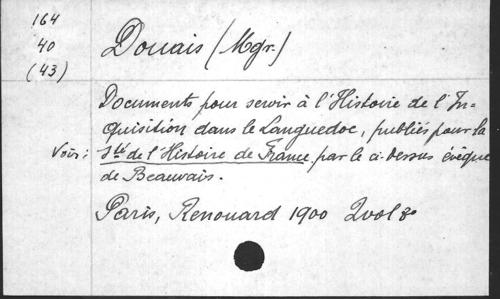 164
40
(43)
Douais (Mgr.)
Documents pour servir à l'Histoire de l'In-
quisition dans le Languedoc, publiés pour la
Voir: Sté de l'Histoire de France, par le ci-dessus évêque
de Beauvais.
Paris, Renouard 1900 2 vol 8º